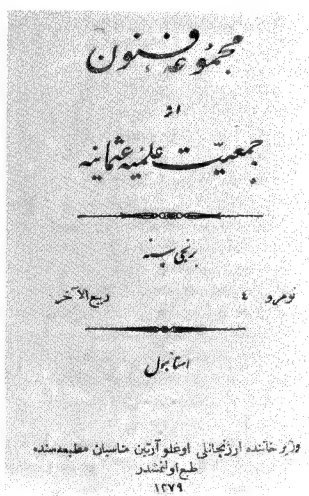 مجموعهٔ فنون
اثر
جمعیت علمیهٔ عثمانیه
برنجی سنه
نومرو ٤ ربیع الآخر
استانبول
وزیر خاننده ارزنجانلی اوغلو آرتین میناسیان مطبعه‌سنده
طبع اولنمشدر
١٢٧٩